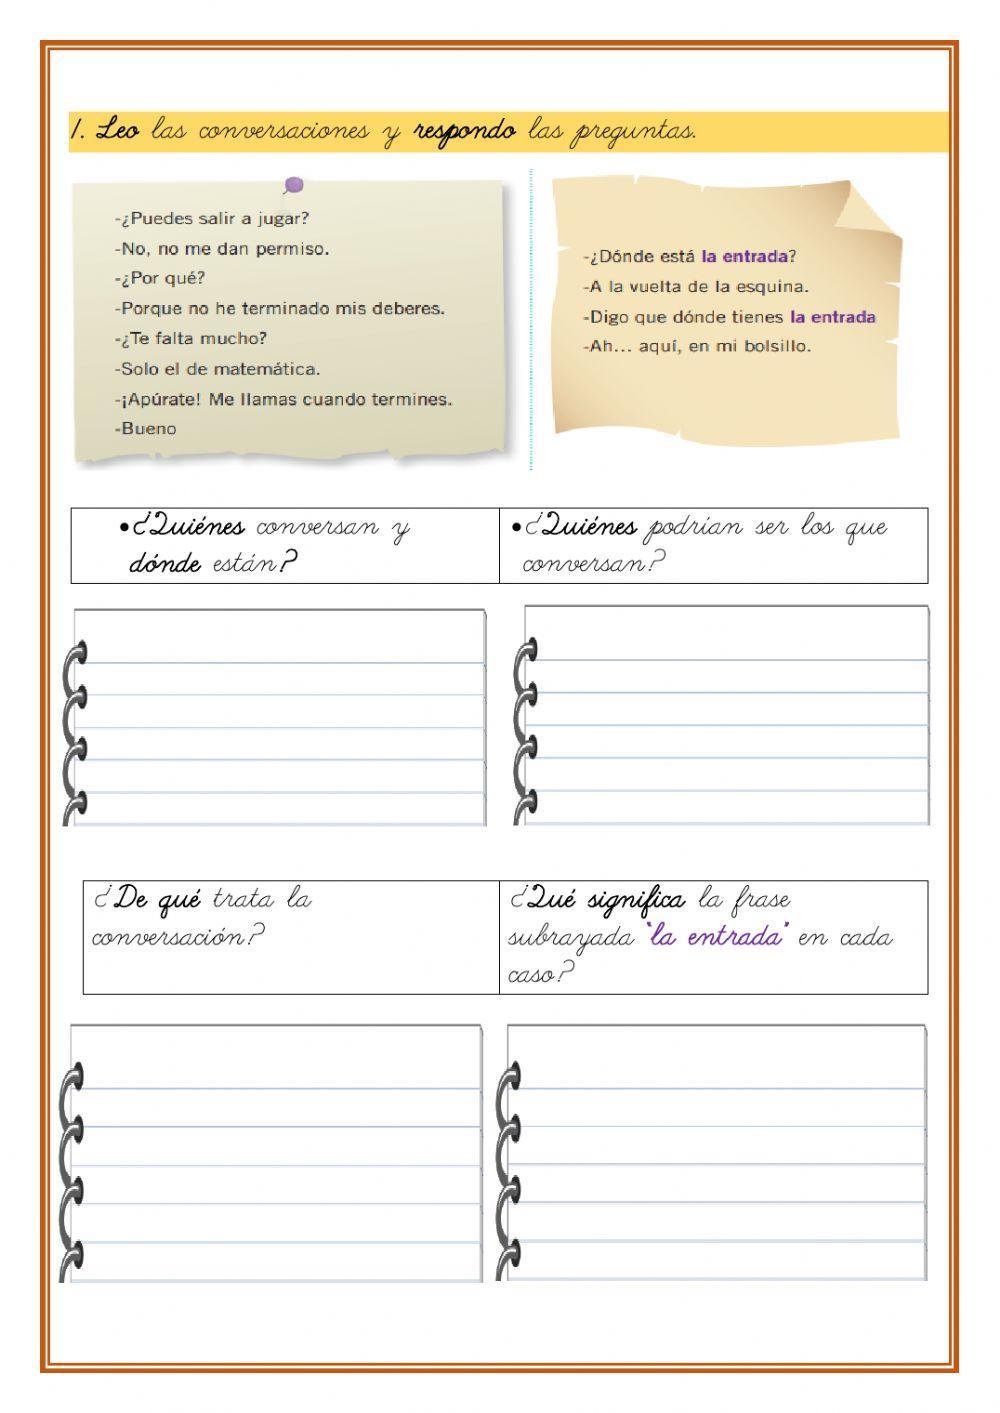 1. Leo las conversaciones y respondo las preguntas.
-¿Puedes salir a jugar?
-No, no me dan permiso.
-¿Por qué?
-Porque no he terminado mis deberes.
-¿Te falta mucho?
-Solo el de matemática.
-¡Apúrate! Me llamas cuando termines.
-Bueno
-¿Dónde está la entrada?
-A la vuelta de la esquina.
-Digo que dónde tienes la entrada
-Ah... aquí, en mi bolsillo.
•¿Quiénes conversan y
dónde están?
•¿Quiénes podrían ser los que
conversan?
¿De qué trata la
conversación?
¿Qué significa la frase
subrayada "la entrada" en cada
caso?